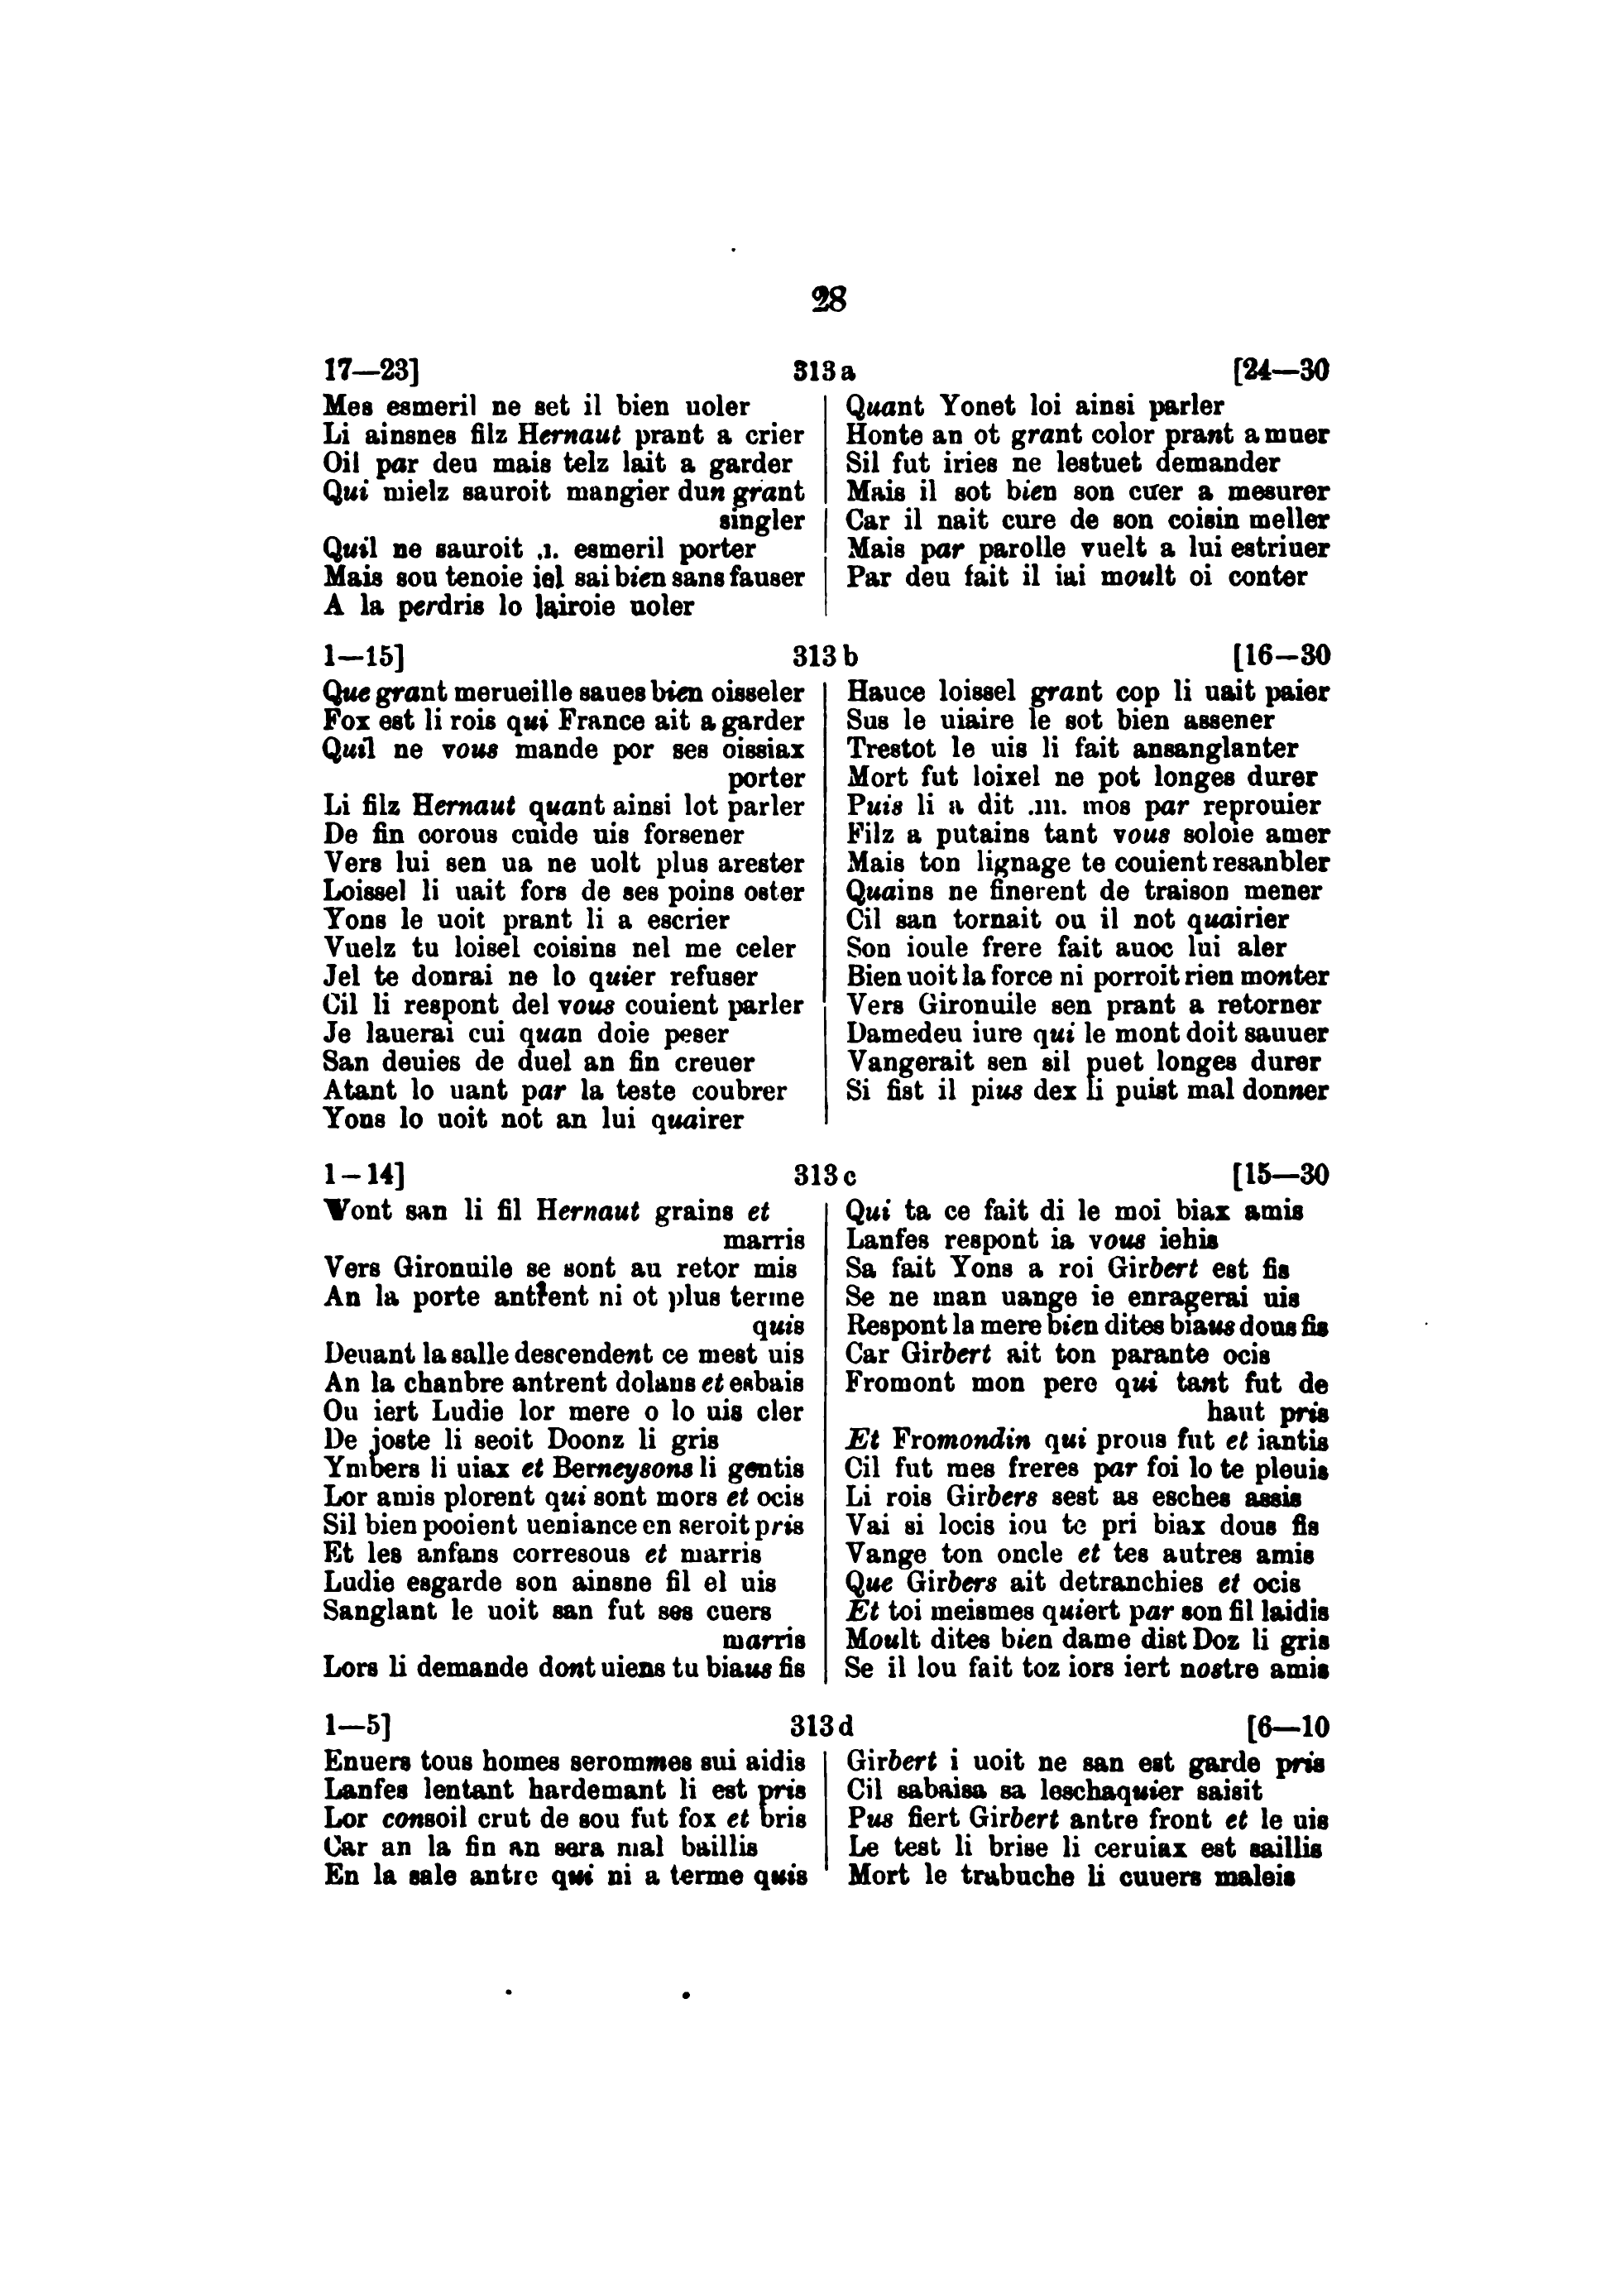 28
17—23]
313 a
[24—30
Mes esmeril ne set il bien uoler
Li ainsnes filz Hernaut prant a crier
Oil par deu mais telz lait a garder
Qui mielz sauroit mangier dun grant
singler
Quil ne sauroit .ı. esmeril porter
Mais sou tenoie iel sai bien sans fauser
A la perdris lo lairoie uoler
Quant Yonet loi ainsi parler
Honte an ot grant color prant a muer
Sil fut iries ne lestuet demander
Mais il sot bien son cuer a mesurer
Car il nait cure de son coisin meller
Mais par parolle vuelt a lui estriuer
Par deu fait il iai moult oi conter
1—15]
313 b
[16—30
Que grant merueille saues bien oisseler
Fox est li rois qui France ait a garder
Quil ne vous mande por ses oissiax
porter
Li filz Hernaut quant ainsi lot parler
De fin corous cuide uis forsener
Vers lui sen ua ne uolt plus arester
Loissel li uait fors de ses poins oster
Yons le uoit prant li a escrier
Vuelz tu loisel coisins nel me celer
Jel te donrai ne lo quier refuser
Cil li respont del vous couient parler
Je lauerai cui quan doie peser
San deuies de duel an fin creuer
Atant lo uant par la teste coubrer
Yons lo uoit not an lui quairer
Hauce loissel grant cop li uait paier
Sus le uiaire le sot bien assener
Trestot le uis li fait ansanglanter
Mort fut loixel ne pot longes durer
Puis li a dit .ııı. mos par reprouier
Filz a putains tant vous soloie amer
Mais ton lignage te couient resanbler
Quains ne finerent de traison mener
Cil san tornait ou il not quairier
Son ioule frere fait auoc lui aler
Bien uoit la force ni porroit rien monter
Vers Gironuile sen prant a retorner
Damedeu iure qui le mont doit sauuer
Vangerait sen sil puet longes durer
Si fist il pius dex li puist mal donner
1—14]
313 c
[15—30
Vont san li fil Hernaut grains et
marris
Vers Gironuile se sont au retor mis
An la porte antrent ni ot plus terme
quis
Deuant la salle descendent ce mest uis
An la chanbre antrent dolans et esbais
Ou iert Ludie lor mere o lo uis cler
De joste li seoit Doonz li gris
Ymbers li uiax et Berneysons li gentis
Lor amis plorent qui sont mors et ocis
Sil bien pooient ueniance en seroit pris
Et les anfans corresous et marris
Ludie esgarde son ainsne fil el uis
Sanglant le uoit san fut ses cuers
marris
Lors li demande dont uiens tu biaus fis
Qui ta ce fait di le moi biax amis
Lanfes respont ia vous iehis
Sa fait Yons a roi Girbert est fis
Se ne man uange ie enragerai uis
Respont la mere bien dites biaus dous fis
Car Girbert ait ton parante ocis
Fromont mon pere qui tant fut de
haut pris
Et Fromondin qui prous fut et iantis
Cil fut mes freres par foi lo te pleuis
Li rois Girbers sest as esches assis
Vai si locis iou te pri biax dous fis
Vange ton oncle et tes autres amis
Que Girbers ait detranchies et ocis
Et toi meismes quiert par son fil laidis
Moult dites bien dame dist Doz li gris
Se il lou fait toz iors iert nostre amis
1—5]
313 d
[6—10
Enuers tous homes serommes sui aidis
Lanfes lentant hardemant li est pris
Lor consoil crut de sou fut fox et bris
Car an la fin an sera mal baillis
En la sale antre qui ni a terme quis
Girbert i uoit ne san est garde pris
Cil sabaisa sa leschaquier saisit
Pus fiert Girbert antre front et le uis
Le test li brise li ceruiax est saillis
Mort le trabuche li cuuers maleis